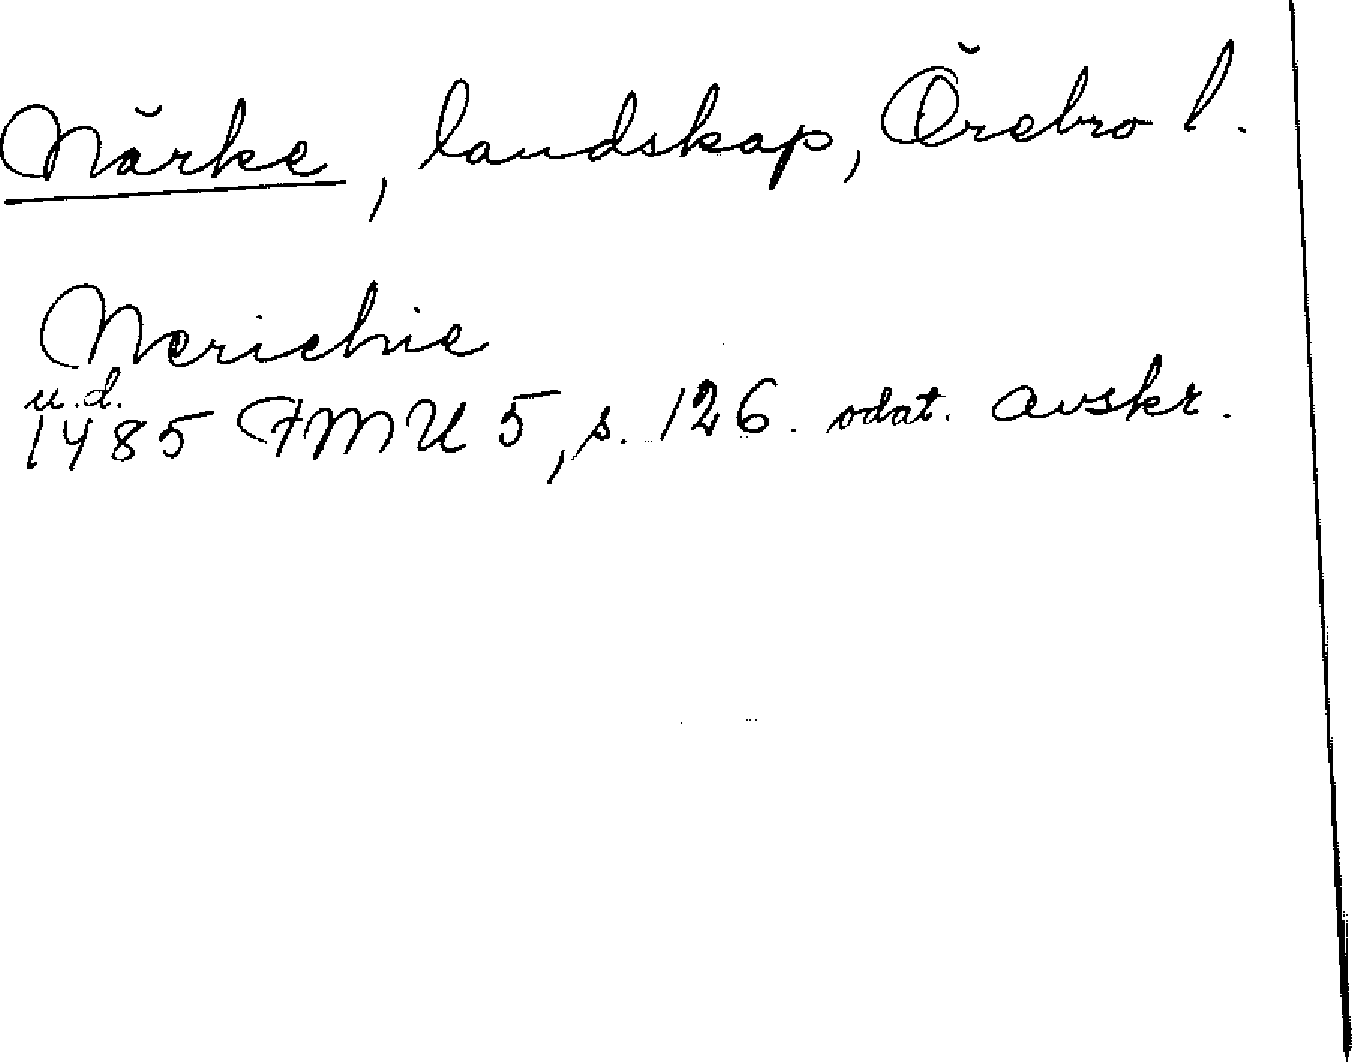 Närke, landskap, Örebro l.
Nerichie
u.d.
1485 FMU 5, s. 126. odat. avskr.